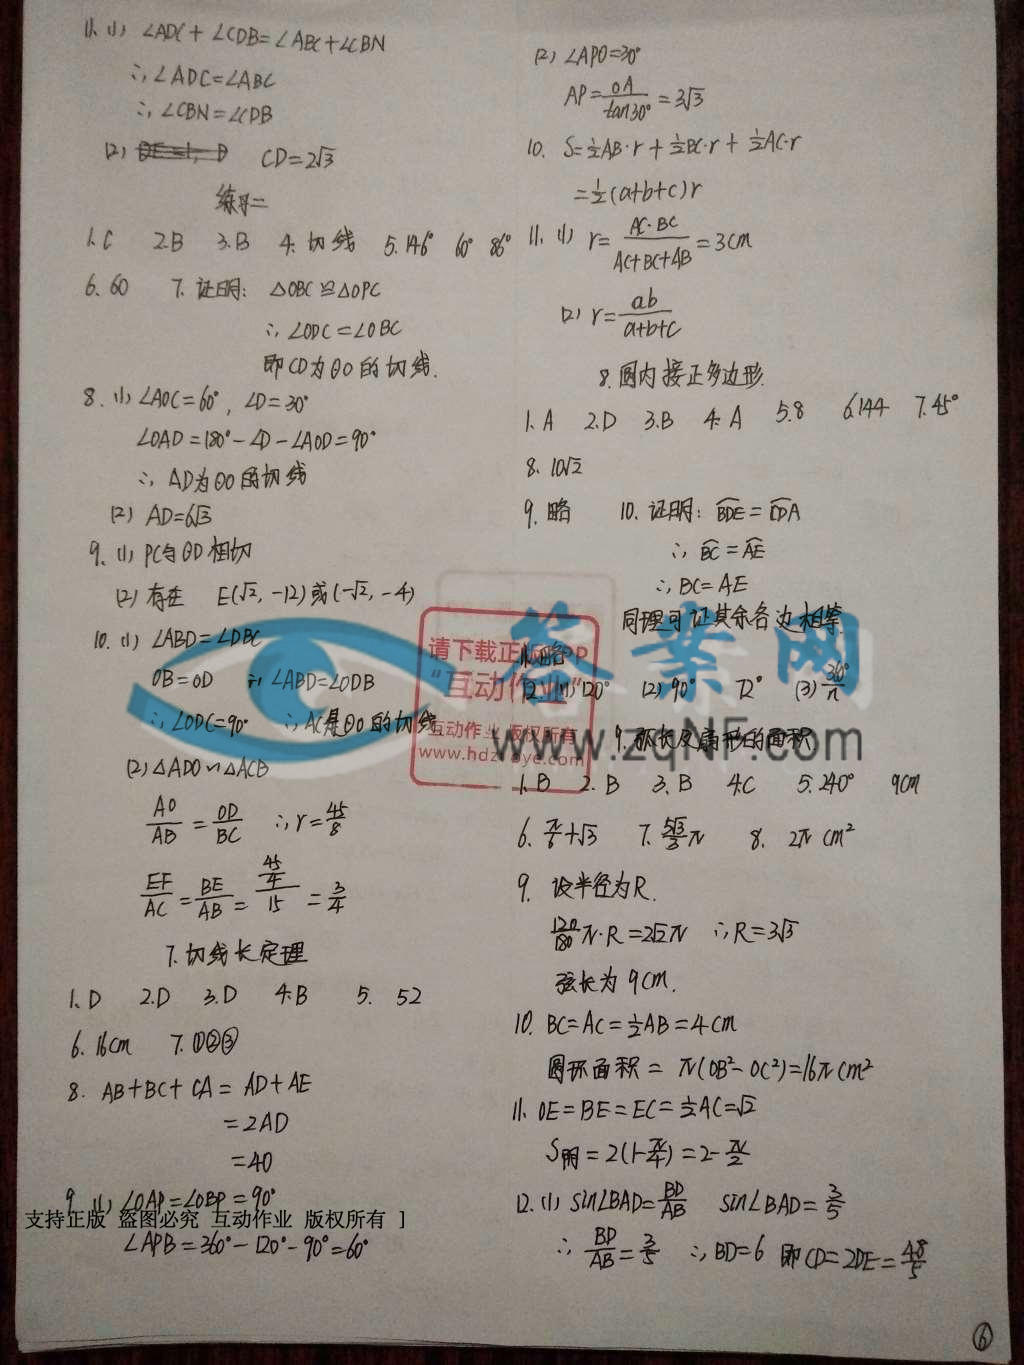 11. (1) ∠ADC+∠CDB=∠ABC+∠CBN
∴∠ADC=∠ABC
∴∠CBN=∠CDB
(2) CD=2√3
练习二
1.C 2.B 3.B 4.切线 5.146° 60° 86°
6.60 7.证明: △OBC≌△OPC
∴∠ODC=∠OBC
即CD为⊙O的切线.
8.(1)∠AOC=60°,∠D=30°
∠OAD=180°-∠D-∠AOD=90°
∴AD为⊙O的切线
(2) AD=6√3
9.(1) PC与⊙D相切
(2)存在 E(√2,-12)或(-√2,-4)
10.(1) ∠ABD=∠DBC
OB=OD ∴∠ABD=∠ODB
∴∠ODC=90° ∴AC是⊙O的切线
(2)△ADO∽△ACB
AO/AB=OD/BC ∴r=45/8
EF/AC=BE/AB=(45/4)/15=3/4
7.切线长定理
1.D 2.D 3.D 4.B 5. 52
6.16cm 7.①②③
8. AB+BC+CA=AD+AE
=2AD
=40
9 (1) ∠OAP=∠OBP=90°
[ 支持正版 盗图必究 互动作业 版权所有 ]
∠APB=360°-120°-90°=60°
(2) ∠APO=30°
AP=OA/tan30°=3√3
10. S=½AB·r+½BC·r+½AC·r
=½(a+b+c)r
11.(1) r=AC·BC/AC+BC+AB=3cm
(2) r=ab/a+b+c
8.圆内接正多边形.
1.A 2.D 3.B 4.A 5.8 6.144 7.45°
8. 10√2
9. 略 10. 证明: BDE=CDA
∴BC=AE
∴BC=AE
同理可证其余各边相等.
11.略
12.(1)120° (2)90° 72° (3)360°/n
9.弧长及扇形的面积
1.B 2.B 3.B 4.C 5.240° 9cm
6. π/6+√3 7. 5√3/3π 8. 2π cm²
9. 设半径为R.
120/180π·R=2√2π ∴R=3√3
弦长为9cm.
10. BC=AC=½AB=4cm
圆环面积=π(OB²-OC²)=16πcm²
11. OE=BE=EC=½AC=√2
S阴=2(1-π/4)=2-π/2
12.(1) sin∠BAD=BD/AB sin∠BAD=3/5
∴BD/AB=3/5 ∴BD=6 即CD=2DE=48/5
6
答案网
www.zqNF.com
请下载正版APP
"互动作业"
互动作业 版权所有